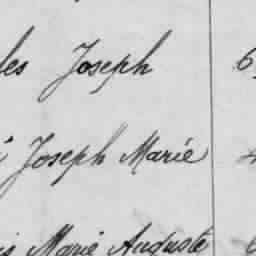 les Joseph
Joseph Marie
Marie Auguste